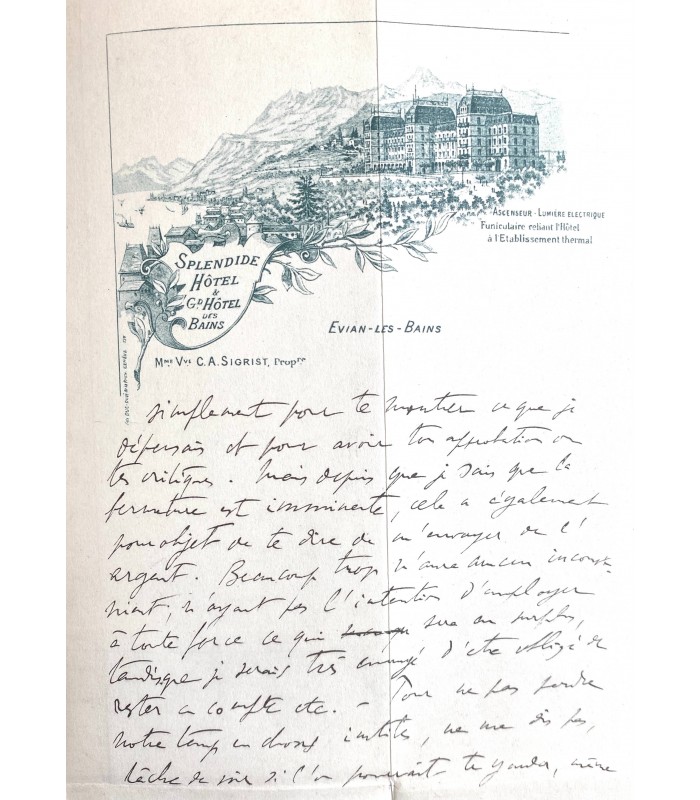 ASCENSEUR - LUMIÈRE ELECTRIQUE
Funiculaire reliant l'Hôtel
à l'Etablissement thermal
SPLENDIDE
HÔTEL
&
GD HÔTEL
DES
BAINS
EVIAN-LES-BAINS
MME VVE C.A. SIGRIST, Propre
simplement pour te montrer ce que je
dépensais et pour avoir ton approbation ou
tes critiques. Mais depuis que je sais que la
fermeture est imminente, cela a également
pour objet de te dire de m'envoyer de l'
argent. Beaucoup trop n'aura aucun inconvé-
nient, n'ayant pas l'intention d'employer
à toute force ce qui sera en surplus,
tandisque je serais très ennuyé d'être obligé de
rester en compte etc. - Pour ne pas perdre
notre temps en choses inutiles, ne me dis pas,
tâche de voir si l'on pourrait te garder, même